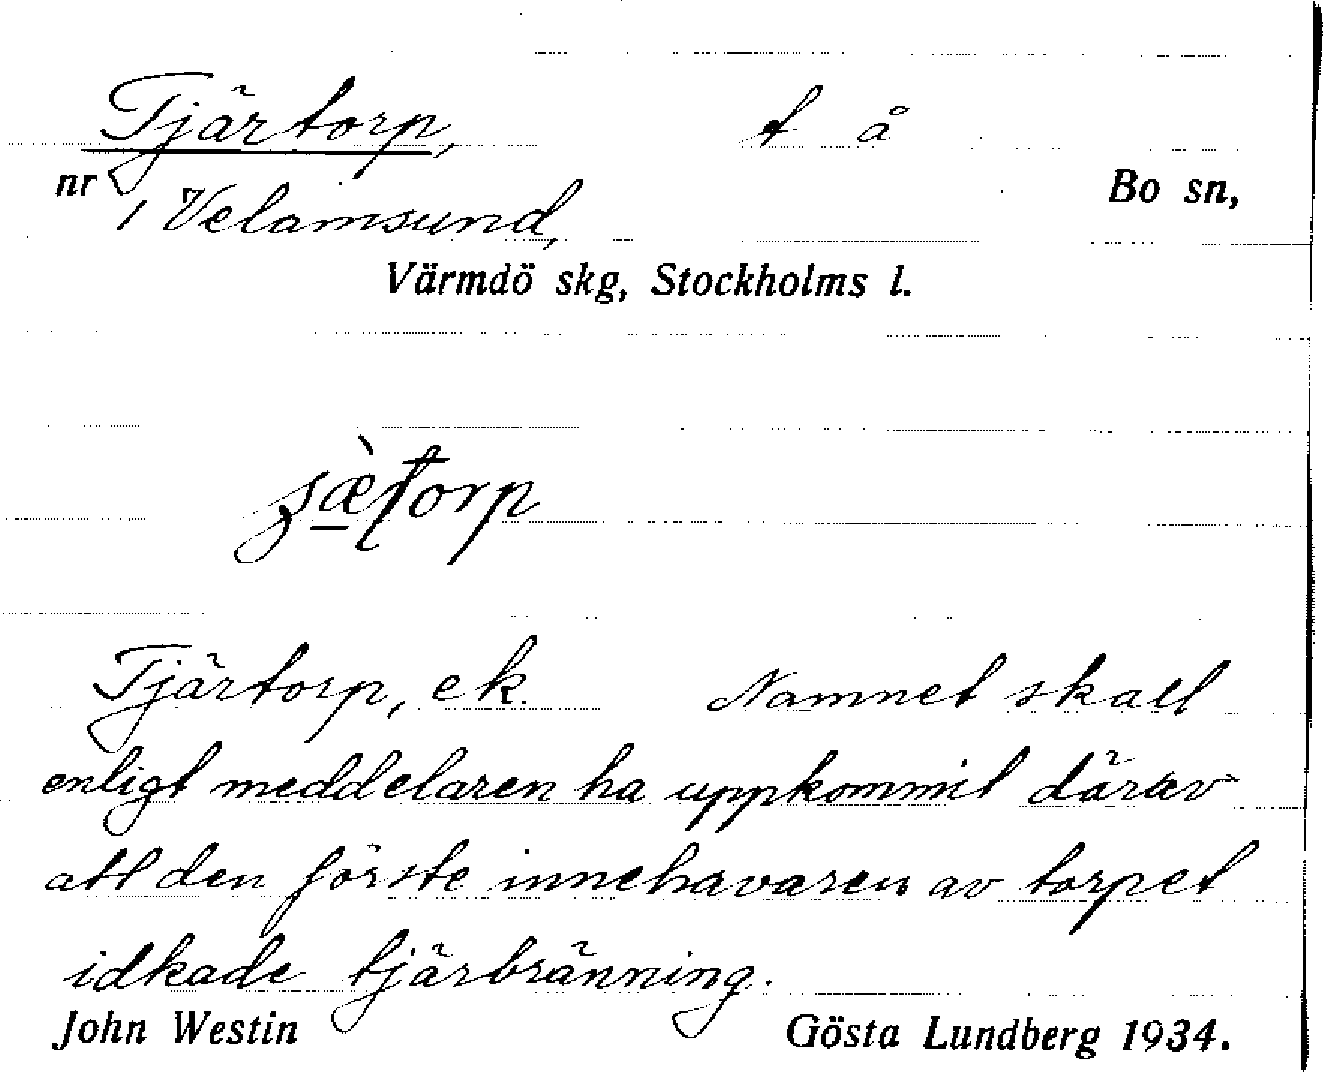 Tjärtorp, t å
nr 1 Velamsund, Bo sn,
Värmdö skg, Stockholms l.
Tjärtorp, ek. Namnet skall
enligt meddelaren ha uppkommit därav
att den förste innehavaren av torpet
idkade tjärbränning.
John Westin Gösta Lundberg 1934.